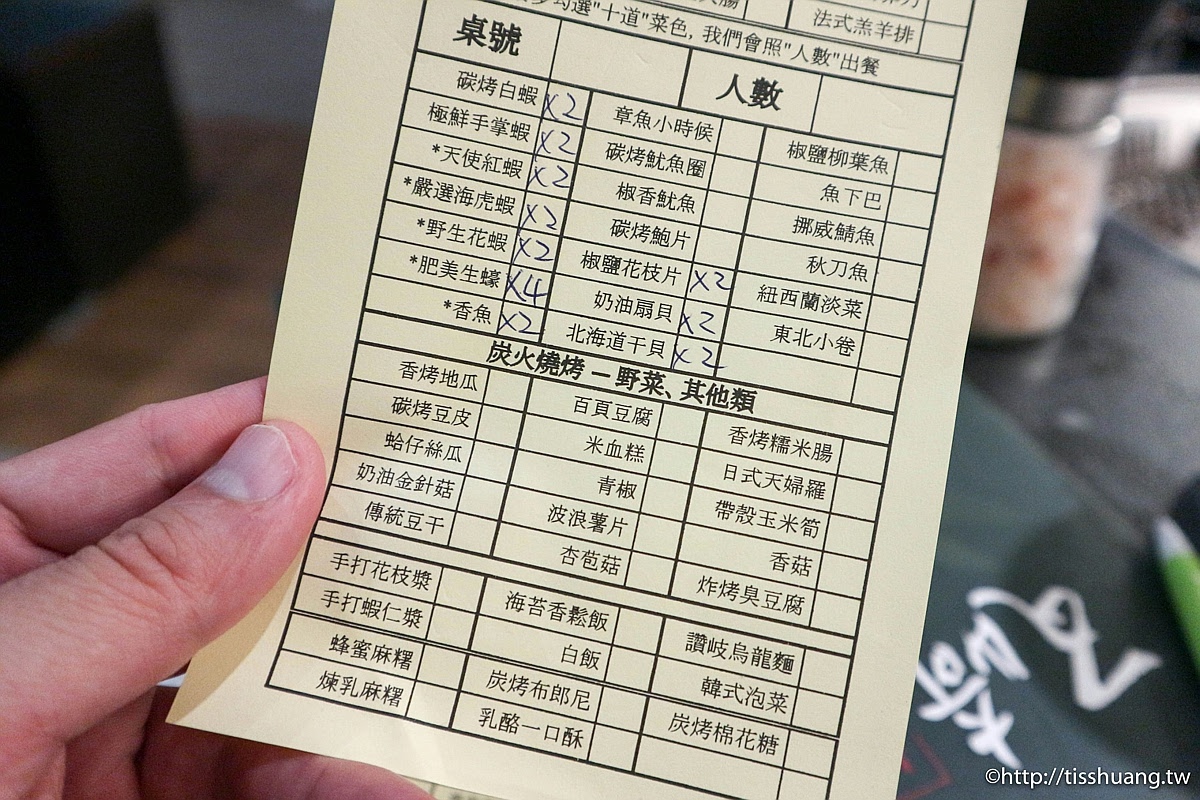 法式羔羊排
勾選"十道"菜色，我們會照"人數"出餐
桌號 人數
碳烤白蝦 x2 章魚小時候 椒鹽柳葉魚
極鮮手掌蝦 x2 碳烤魷魚圈 魚下巴
*天使紅蝦 x2 椒香魷魚 挪威鯖魚
*嚴選海虎蝦 x2 碳烤鮑片 秋刀魚
*野生花蝦 x2 椒鹽花枝片 x2 紐西蘭淡菜
*肥美生蠔 x4 奶油扇貝 x2 東北小卷
*香魚 x2 北海道干貝 x2
炭火燒烤－野菜、其他類
香烤地瓜 百頁豆腐 香烤糯米腸
碳烤豆皮 米血糕 日式天婦羅
蛤仔絲瓜 青椒 帶殼玉米筍
奶油金針菇 波浪薯片 香菇
傳統豆干 杏苞菇 炸烤臭豆腐
手打花枝漿 海苔香鬆飯 讚岐烏龍麵
手打蝦仁漿 白飯 韓式泡菜
蜂蜜麻糬 炭烤布郎尼 炭烤棉花糖
煉乳麻糬 乳酪一口酥
©http://tisshuang.tw